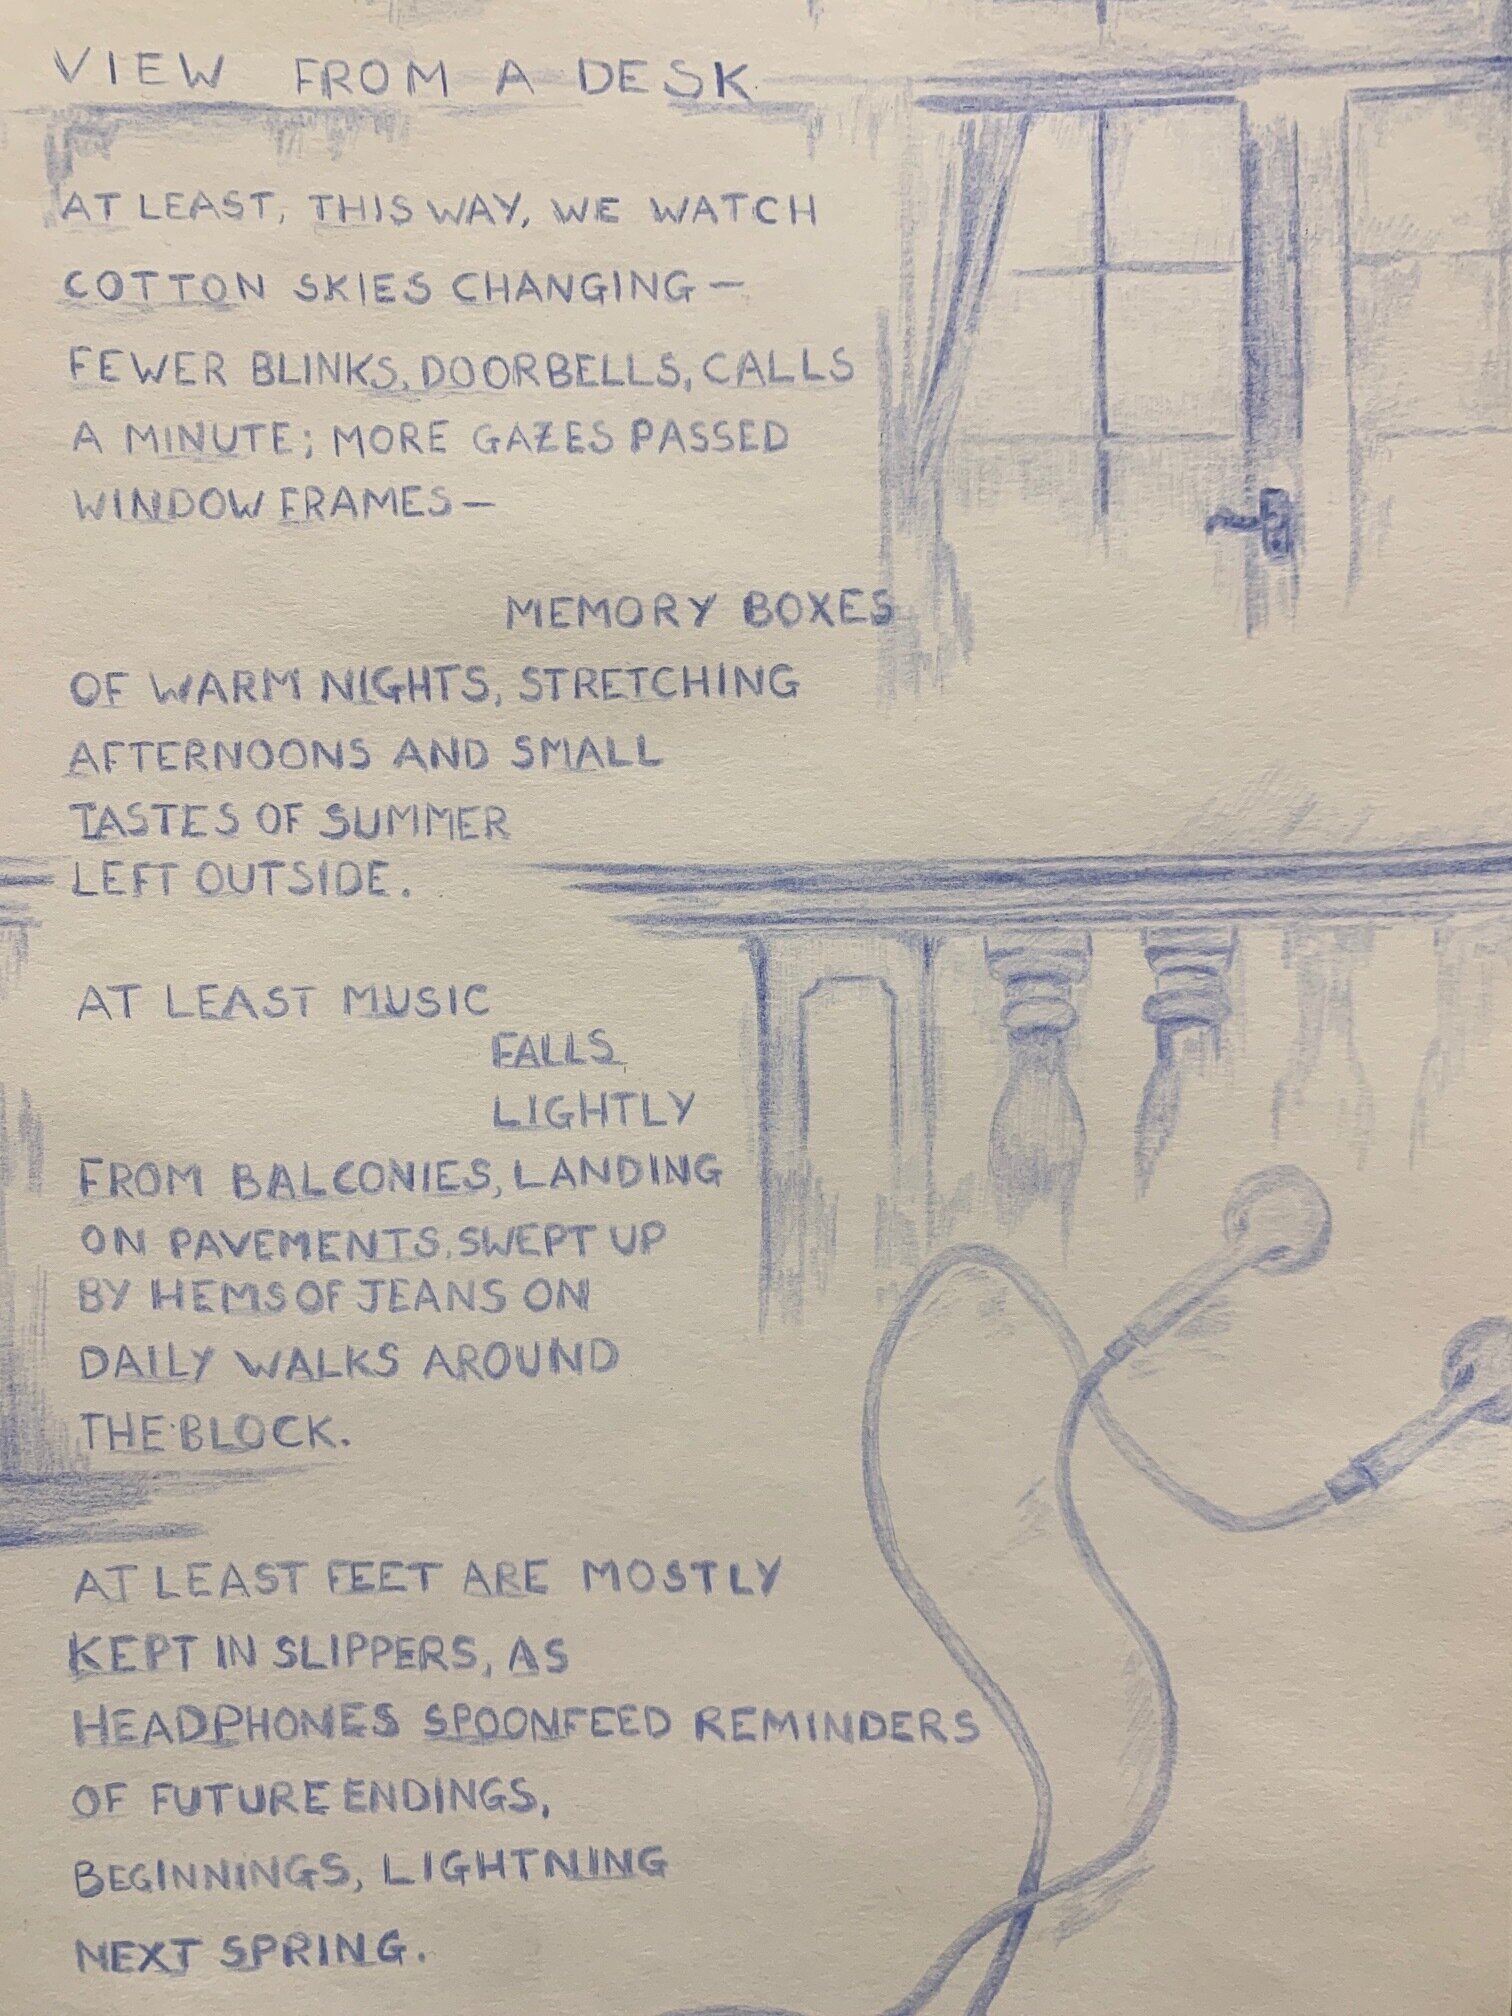 VIEW FROM A DESK
AT LEAST, THIS WAY, WE WATCH
COTTON SKIES CHANGING—
FEWER BLINKS, DOORBELLS, CALLS
A MINUTE; MORE GAZES PASSED
WINDOW FRAMES—
MEMORY BOXES
OF WARM NIGHTS, STRETCHING
AFTERNOONS AND SMALL
TASTES OF SUMMER
LEFT OUTSIDE.
AT LEAST MUSIC
FALLS
LIGHTLY
FROM BALCONIES, LANDING
ON PAVEMENTS, SWEPT UP
BY HEMS OF JEANS ON
DAILY WALKS AROUND
THE BLOCK.
AT LEAST FEET ARE MOSTLY
KEPT IN SLIPPERS, AS
HEADPHONES SPOONFEED REMINDERS
OF FUTURE ENDINGS,
BEGINNINGS, LIGHTNING
NEXT SPRING.